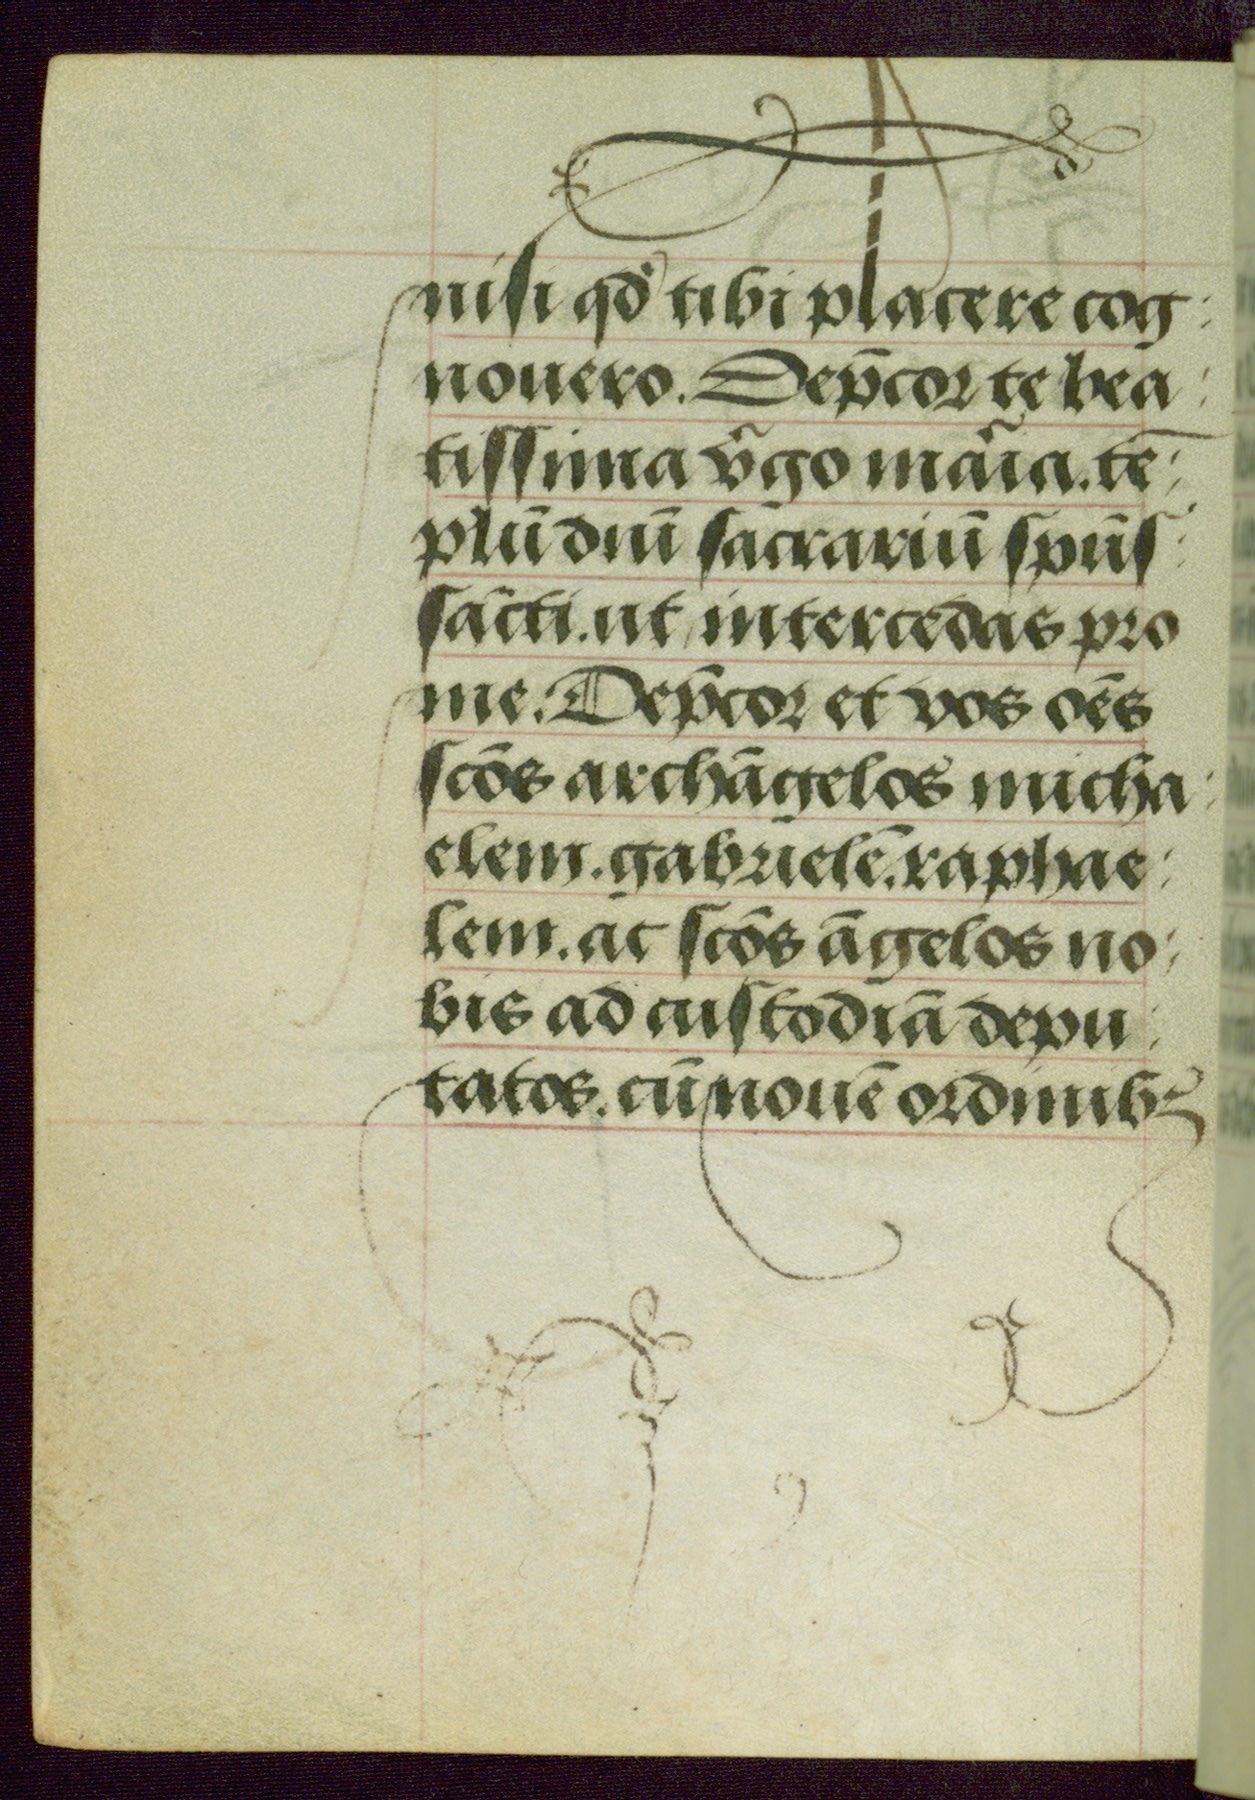 nisi qđ tibi placere cog:
nouero. Dep̄cor te bea:
tissima v̄go maria. tē:
plū dnī sacrariū spūs:
sancti. ut intercedas pro
me. Dep̄cor et vos oēs
scōs archāgelos micha:
elem. gabrielē. raphae:
lem. ac scōs āgelos no:
bis ad custodiā depu:
tatos. cū nouē ordinibꝫ